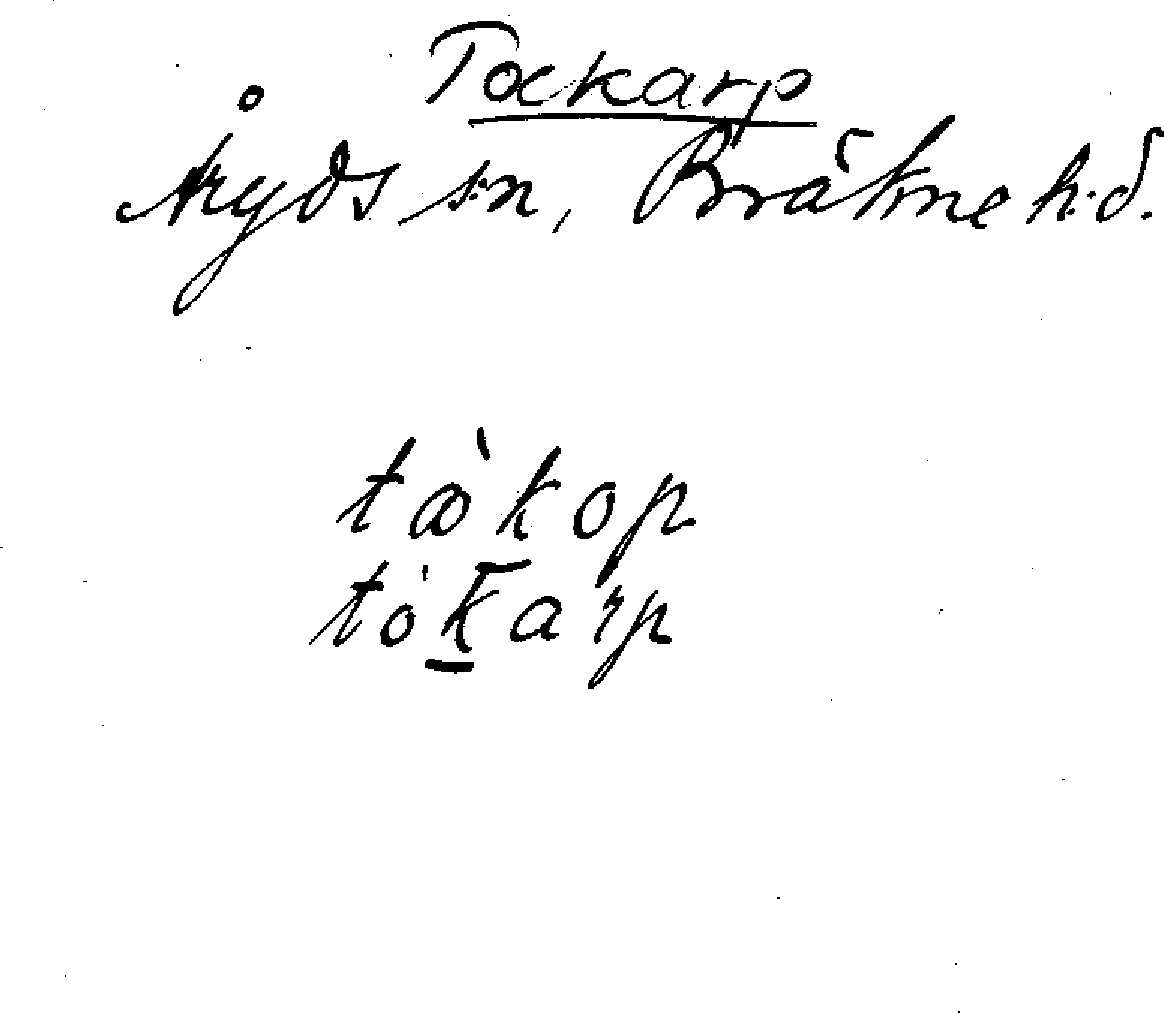 Tockarp
Åryds sn, Bräkne h.d.
tàkop
tókarp